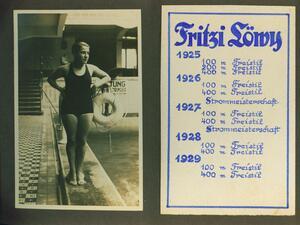 TUNG
Fritzi Löwy
1925
100 m Freistil
200 m Freistil
400 m Freistil
1926
100 m Freistil
400 m Freistil
Strommeisterschaft
1927
100 m Freistil
400 m Freistil
Strommeisterschaft
1928
100 m Freistil
400 m Freistil
1929
100 m Freistil
400 m Freistil